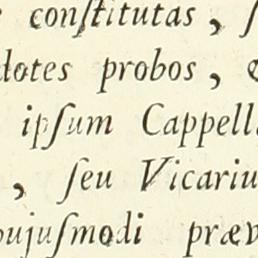 conſtitutas, ſ
dotes probos,
ipſum Cappell
, ſeu Vicariu
hujuſmodi præv